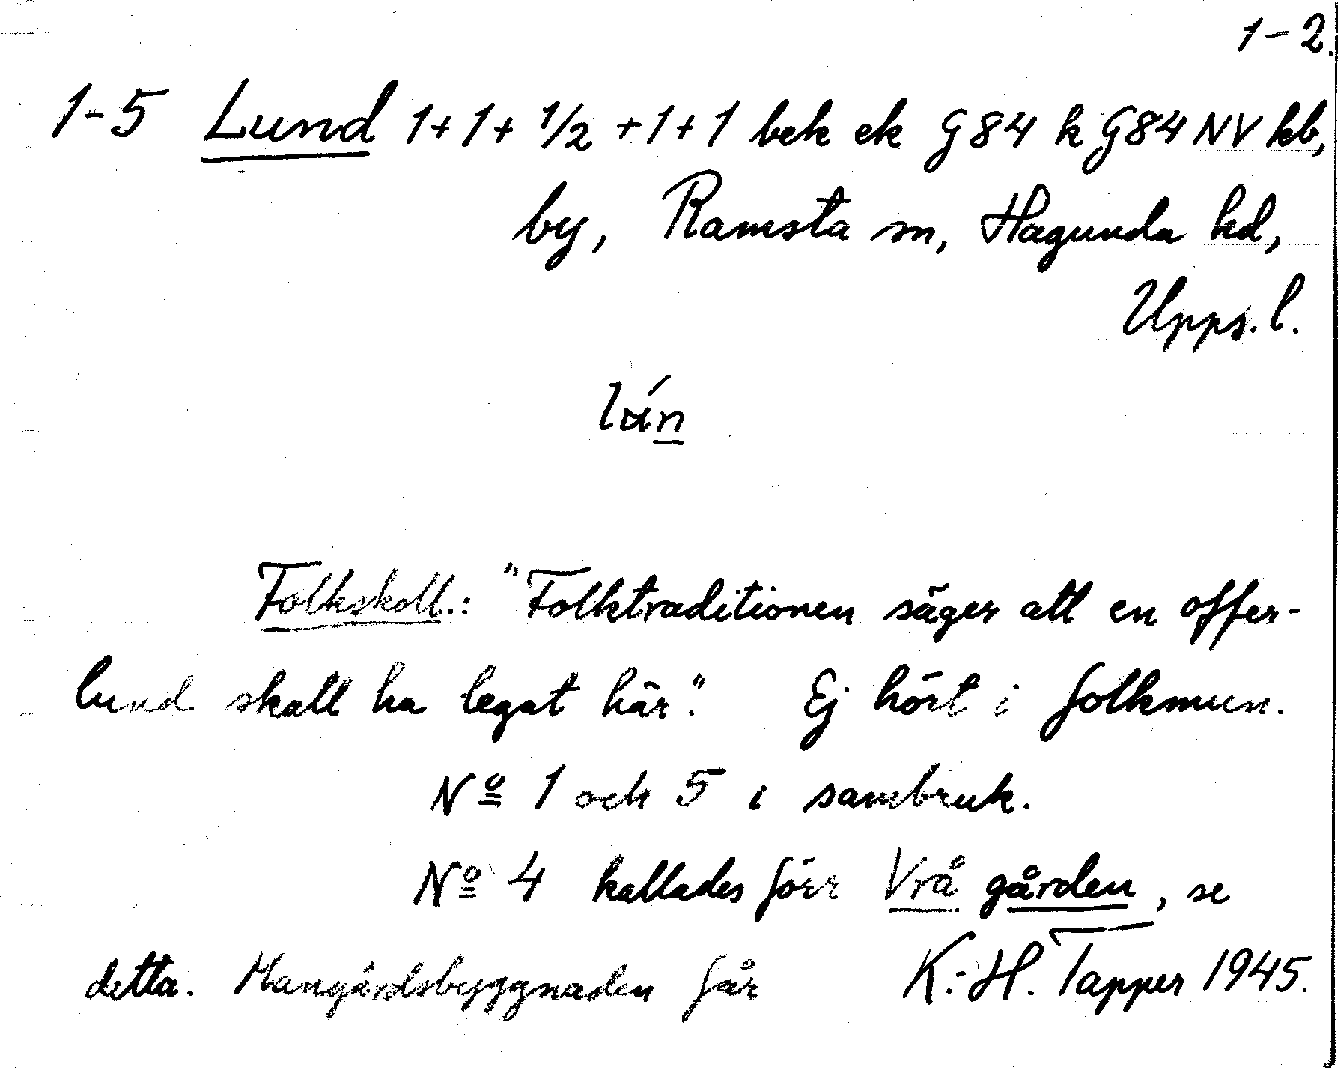 1-2.
1-5 Lund 1+1+ 1/2 +1+1 bek ek G84 k G84 NV kb,
by, Ramsta sn, Hagunda hd,
Upps. l.
Folkskoll.: "Folktraditionen säger att en offer-
lund skall ha legat här". Ej hört i folkmun.
Nº 1 och 5 i sambruk.
Nº 4 kallades förr Vrå gården, se
detta. Mangårdsbyggnaden får K.-H. Tapper 1945.